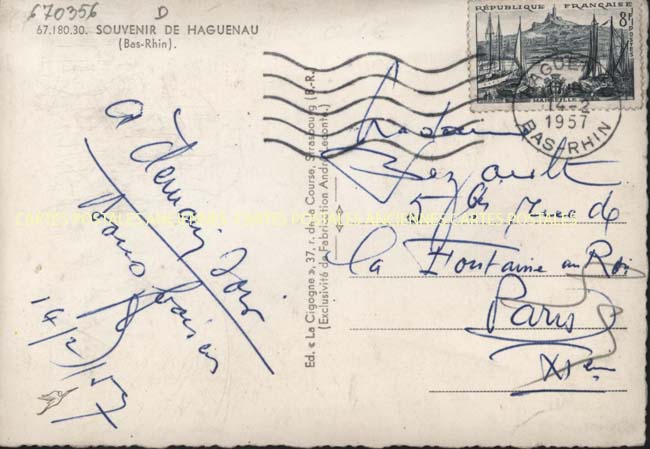 670356 D
67.180.30. SOUVENIR DE HAGUENAU
(Bas-Rhin).
RÉPUBLIQUE FRANÇAISE
8F
HAGUENAU
14-2
1957
BAS-RHIN
à demain
14/2/57
Ed. « La Cigogne », 37, r. de la Course, Strasbourg (B.-R.)
(Exclusivité de Fabrication André Leconte.)
Madame
5 bis Rue de
La Fontaine au Roi
Paris
XIem
CARTES POSTALES ANCIENNES CARTES POSTALES ANCIENNES CARTES POSTALES